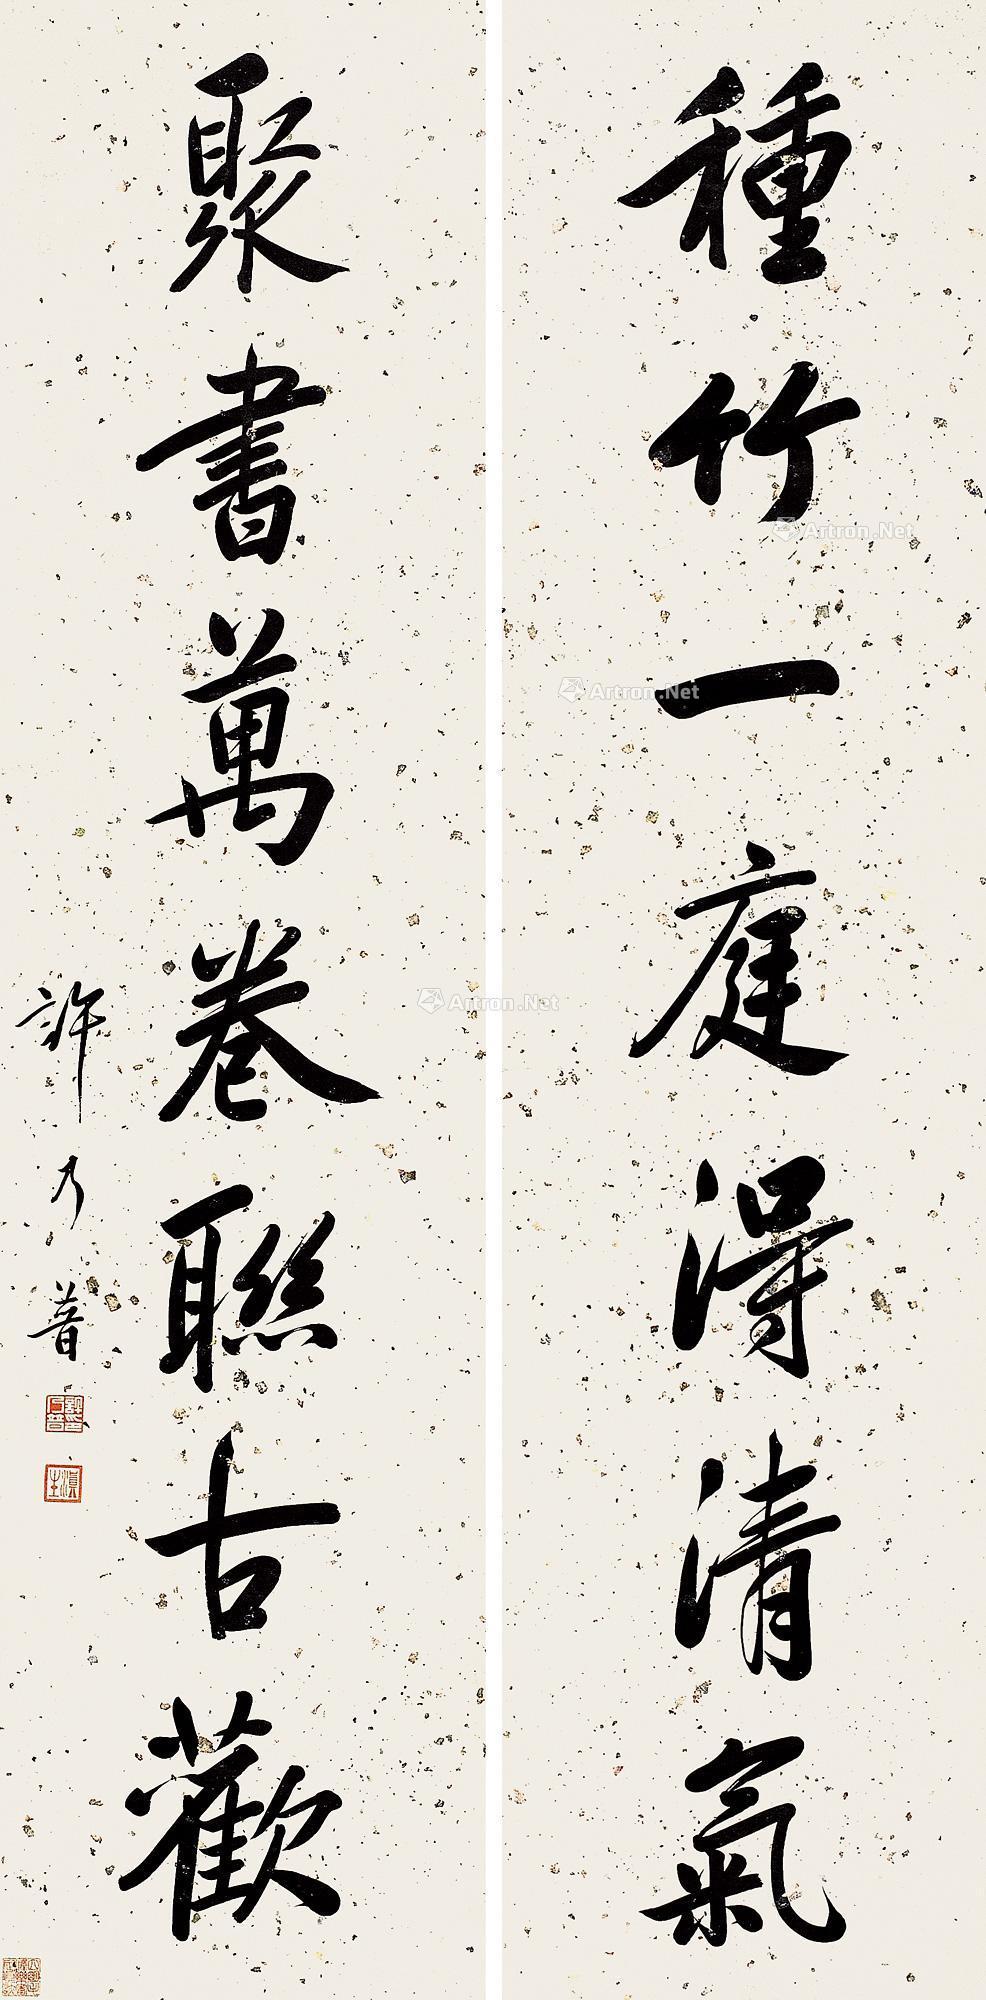 種竹一庭得清氣
聚書萬卷聯古歡
許乃普
Artron.Net
Artron.Net
Artron.Net